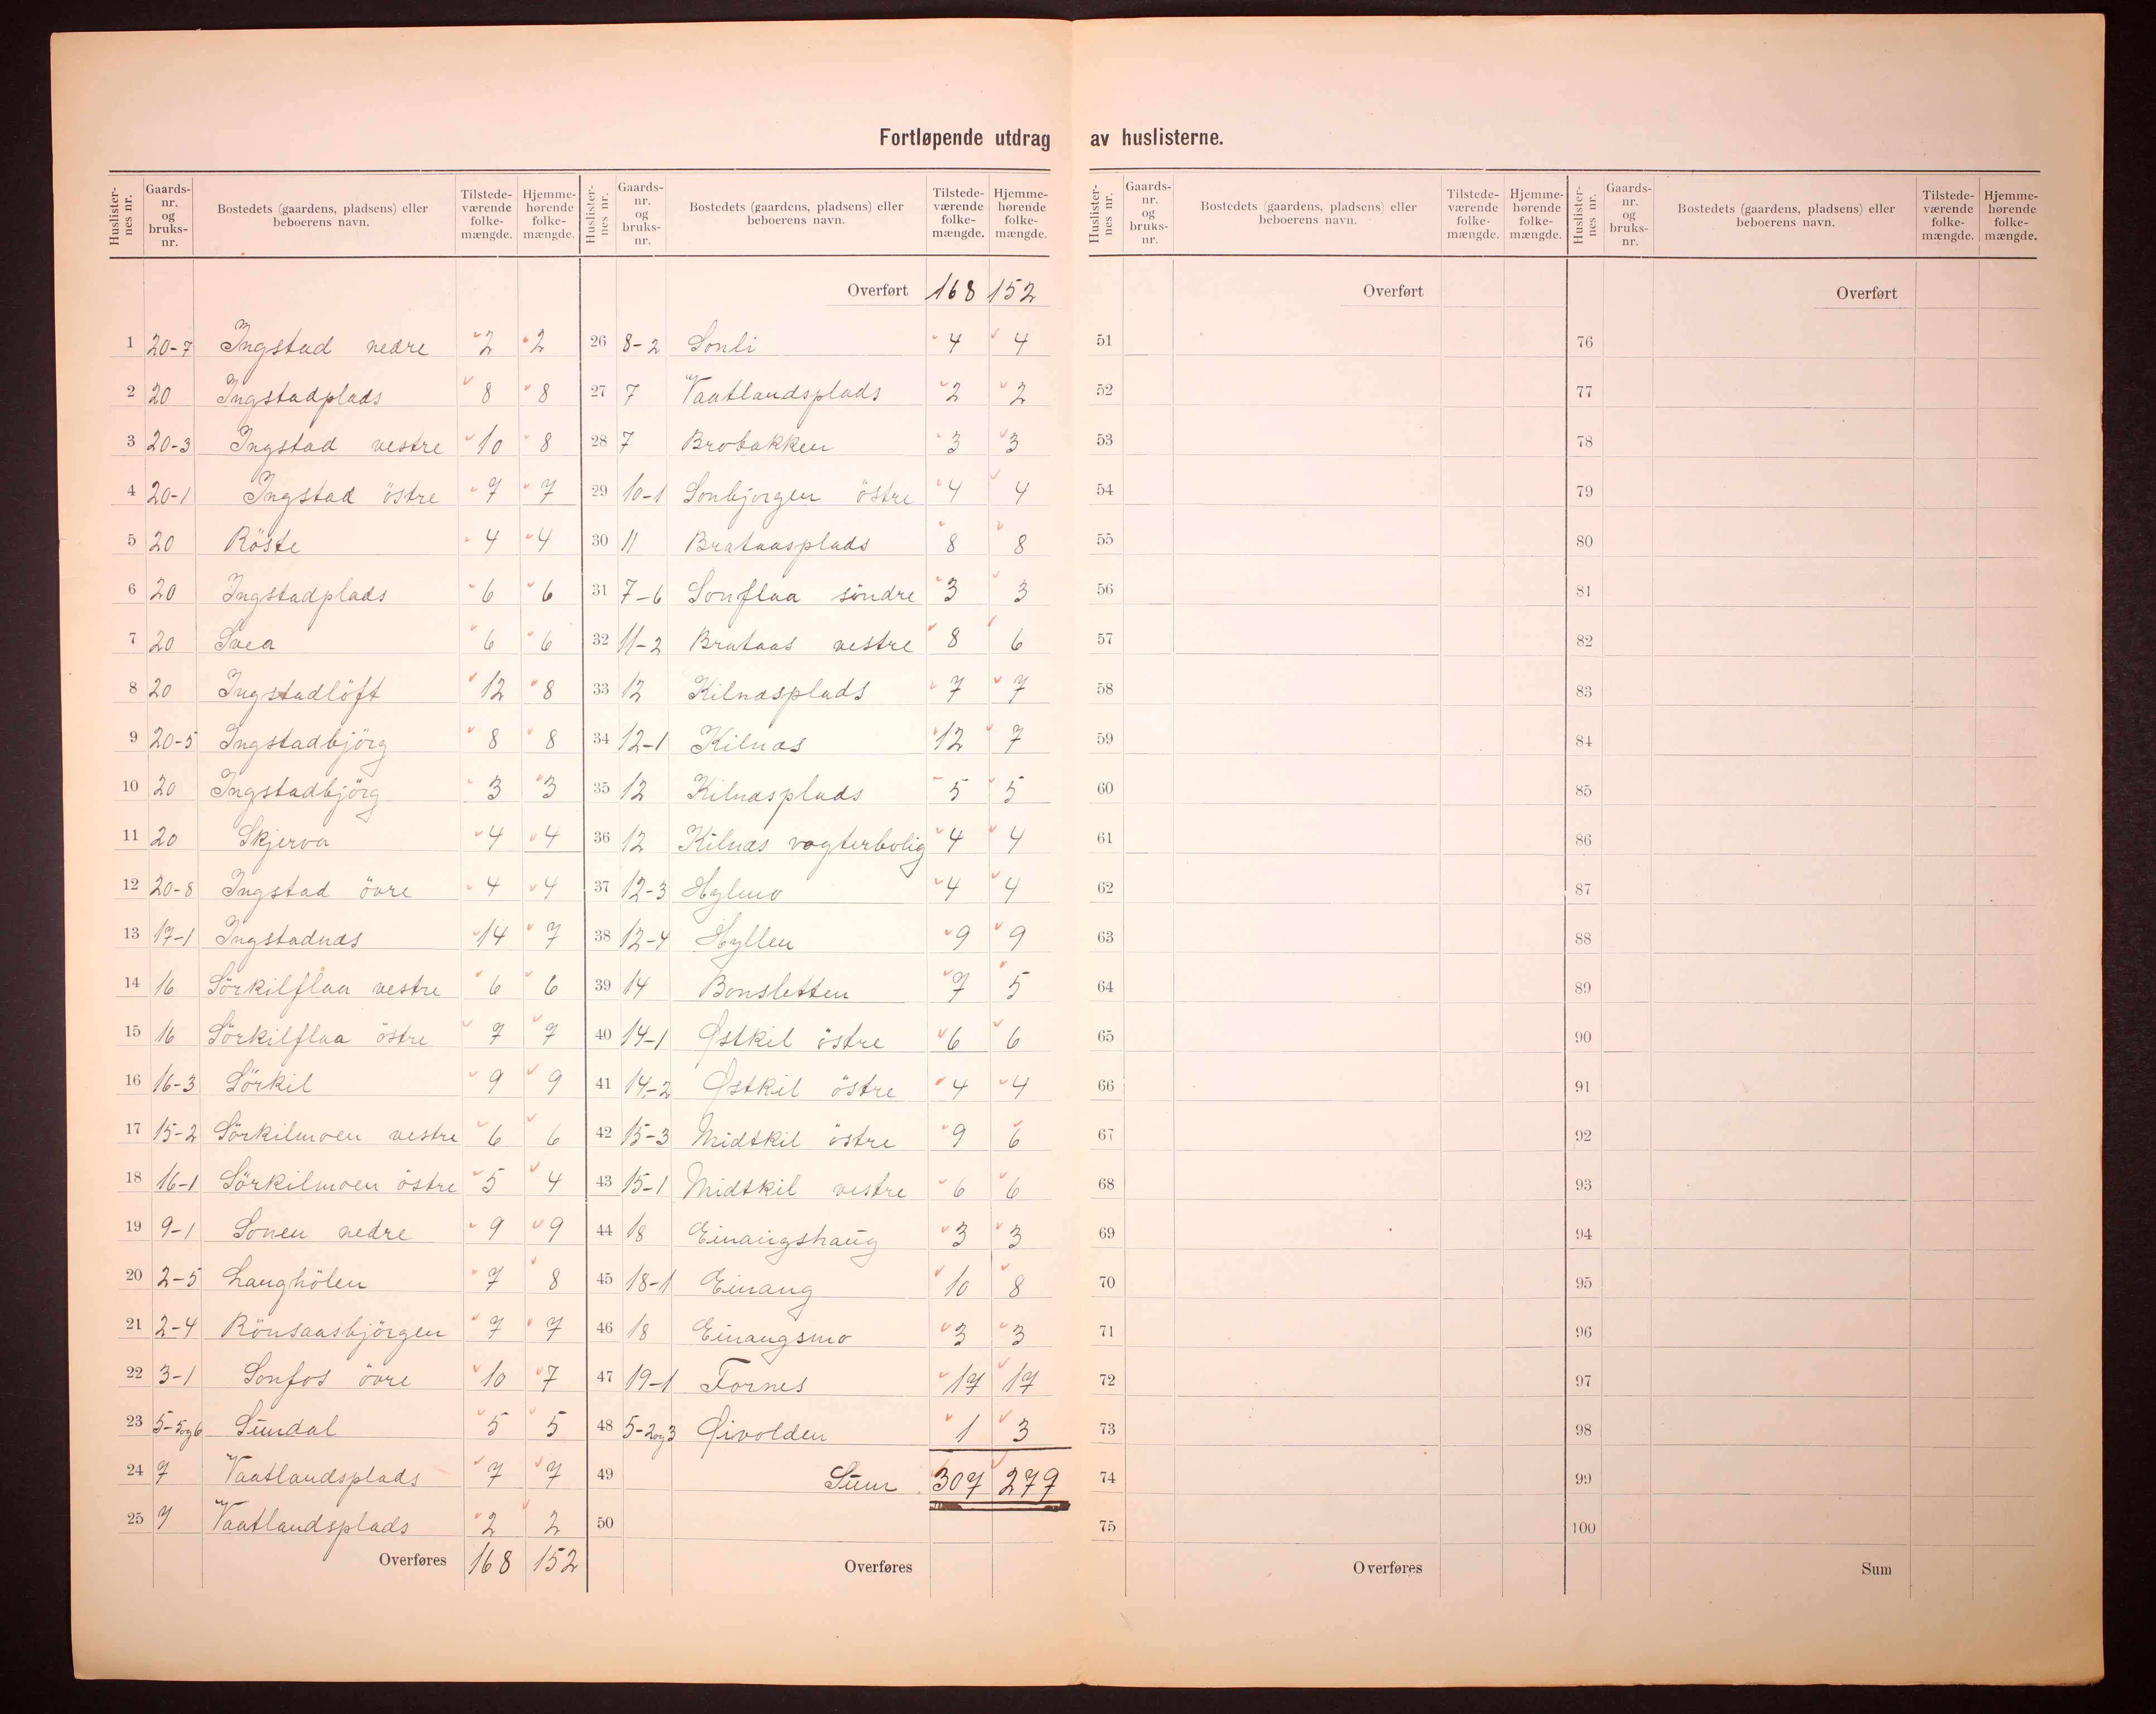 Fortløpende utdrag av huslisterne.
Huslister-nes nr. | Gaards-nr. og bruks-nr. | Bostedets (gaardens, pladsens) eller beboerens navn. | Tilstede-værende folke-mængde. | Hjemme-hørende folke-mængde.
1 20-7 Ingstad nedre 2 2
2 20 Ingstadplads 8 8
3 20-3 Ingstad vestre 10 8
4 20-1 Ingstad östre 7 7
5 20 Röste 4 4
6 20 Ingstadplads 6 6
7 20 Svea 6 6
8 20 Ingstadlöft 12 8
9 20-5 Ingstadbjörg 8 8
10 20 Ingstadbjörg 3 3
11 20 Skjerva 4 4
12 20-8 Ingstad övre 4 4
13 17-1 Ingstadnæs 14 7
14 16 Sörkilflaa vestre 6 6
15 16 Sörkilflaa östre 7 7
16 16-3 Sörkil 9 9
17 15-2 Sörkilmoen vestre 6 6
18 16-1 Sörkilmoen östre 5 4
19 9-1 Sonen nedre 9 9
20 2-5 Langhölen 7 8
21 2-4 Rönsaasbjörgen 7 7
22 3-1 Sonfos övre 10 7
23 5-5og6 Sundal 5 5
24 7 Vaatlandsplads 7 7
25 7 Vaatlandsplads 2 2
Overføres 168 152
Huslister-nes nr. | Gaards-nr. og bruks-nr. | Bostedets (gaardens, pladsens) eller beboerens navn. | Tilstede-værende folke-mængde. | Hjemme-hørende folke-mængde.
Overført 168 152
26 8-2 Sonli 4 4
27 7 Vaatlandsplads 2 2
28 7 Brobakken 3 3
29 10-1 Sonbjorgen östre 4 4
30 11 Brataasplads 8 8
31 7-6 Sonflaa söndre 3 3
32 11-2 Brataas vestre 8 6
33 12 Kilnæsplads 7 7
34 12-1 Kilnæs 12 7
35 12 Kilnæsplads 5 5
36 12 Kilnæs vogterbolig 4 4
37 12-3 Hylmo 4 4
38 12-4 Hyllen 9 9
39 14 Bonsletten 7 5
40 14-1 Østkil östre 6 6
41 14-2 Østkil östre 4 4
42 15-3 Midtkil östre 9 6
43 15-1 Midtkil vestre 6 6
44 18 Einangshaug 3 3
45 18-1 Einang 10 8
46 18 Einangsmo 3 3
47 19-1 Fornes 17 17
48 5-2og3 Øivolden 1 3
49 Sum 307 279
50
Overføres
Huslister-nes nr. | Gaards-nr. og bruks-nr. | Bostedets (gaardens, pladsens) eller beboerens navn. | Tilstede-værende folke-mængde. | Hjemme-hørende folke-mængde.
Overført
51
52
53
54
55
56
57
58
59
60
61
62
63
64
65
66
67
68
69
70
71
72
73
74
75
Overføres
Huslister-nes nr. | Gaards-nr. og bruks-nr. | Bostedets (gaardens, pladsens) eller beboerens navn. | Tilstede-værende folke-mængde. | Hjemme-hørende folke-mængde.
Overført
76
77
78
79
80
81
82
83
84
85
86
87
88
89
90
91
92
93
94
95
96
97
98
99
100
Sum